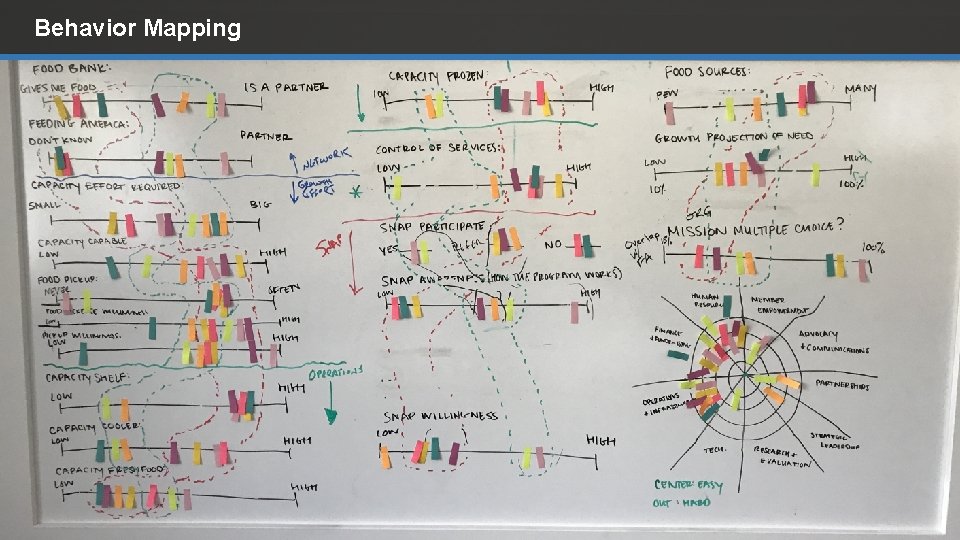 Behavior Mapping
FOOD BANK:
GIVES ME FOOD
IS A PARTNER
FEEDING AMERICA:
DON'T KNOW
PARTNER
NETWORK
CAPACITY EFFORT REQUIRED:
GROWTH
EFFORT
SMALL
BIG
CAPACITY CAPABLE
LOW
HIGH
FOOD PICKUP:
HIGH
PICKUP WILLINGNESS:
LOW
HIGH
CAPACITY SHELF:
OPERATIONS
LOW
HIGH
CAPACITY COOLER:
LOW
HIGH
CAPACITY FRESH FOOD:
LOW
HIGH
CAPACITY FROZEN:
LOW
HIGH
CONTROL OF SERVICES:
LOW
HIGH
SNAP
SNAP PARTICIPATE
YES
NO
(HOW THE PROGRAM WORKS)
LOW
HIGH
SNAP WILLINGNESS
LOW
HIGH
FOOD SOURCES:
FEW
MANY
GROWTH PROJECTION OF NEED
LOW
HIGH
10%
100%
ORG
MISSION MULTIPLE CHOICE?
overlap
100%
HUMAN
MEMBER
EMPOWERMENT
FINANCE
ADVOCACY
+ COMMUNICATIONS
PARTNERSHIPS
OPERATIONS
STRATEGIC
LEADERSHIP
TECH.
RESEARCH +
EVALUATION
CENTER: EASY
OUT: HARD